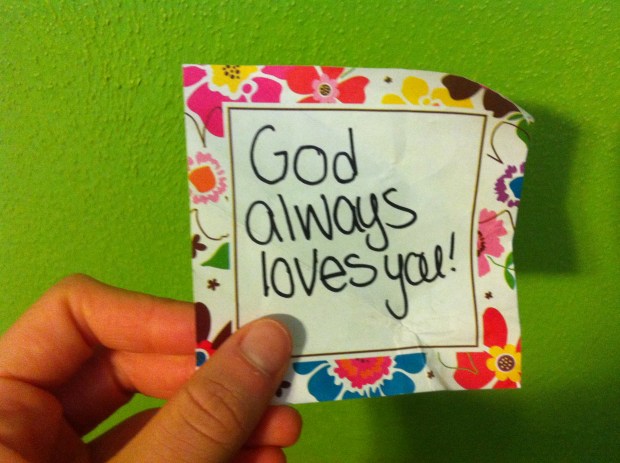 God
always
loves you!